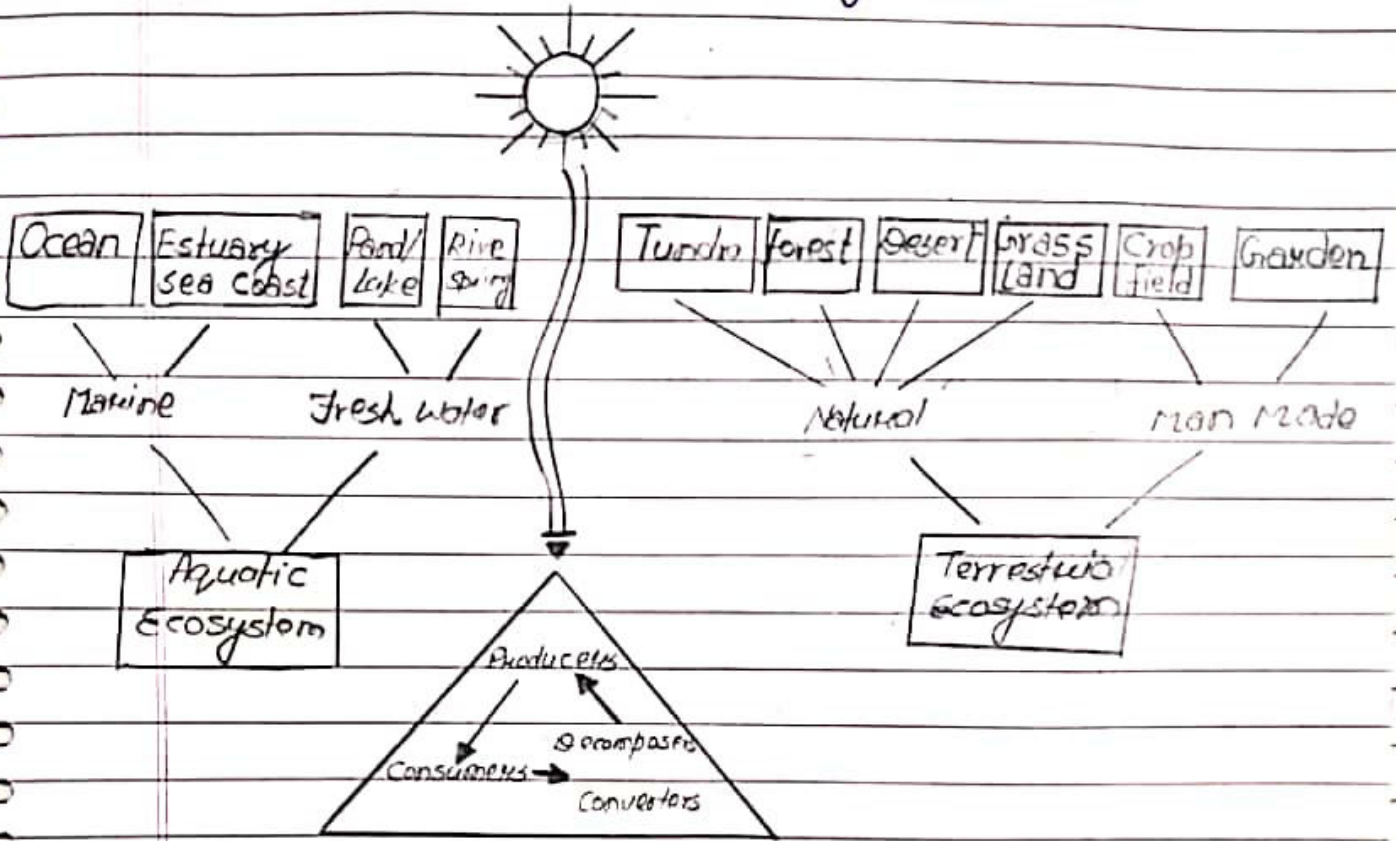 Ocean
Estuary
sea coast
Pond/
Lake
Rive
Spring
Tundra
forest
Desert
Grass
Land
Crop
field
Garden
Marine
Fresh water
Natural
Man Made
Aquatic
Ecosystem
Terrestrial
Ecosystem
Producers
Decomposers
Consumers
Convertors